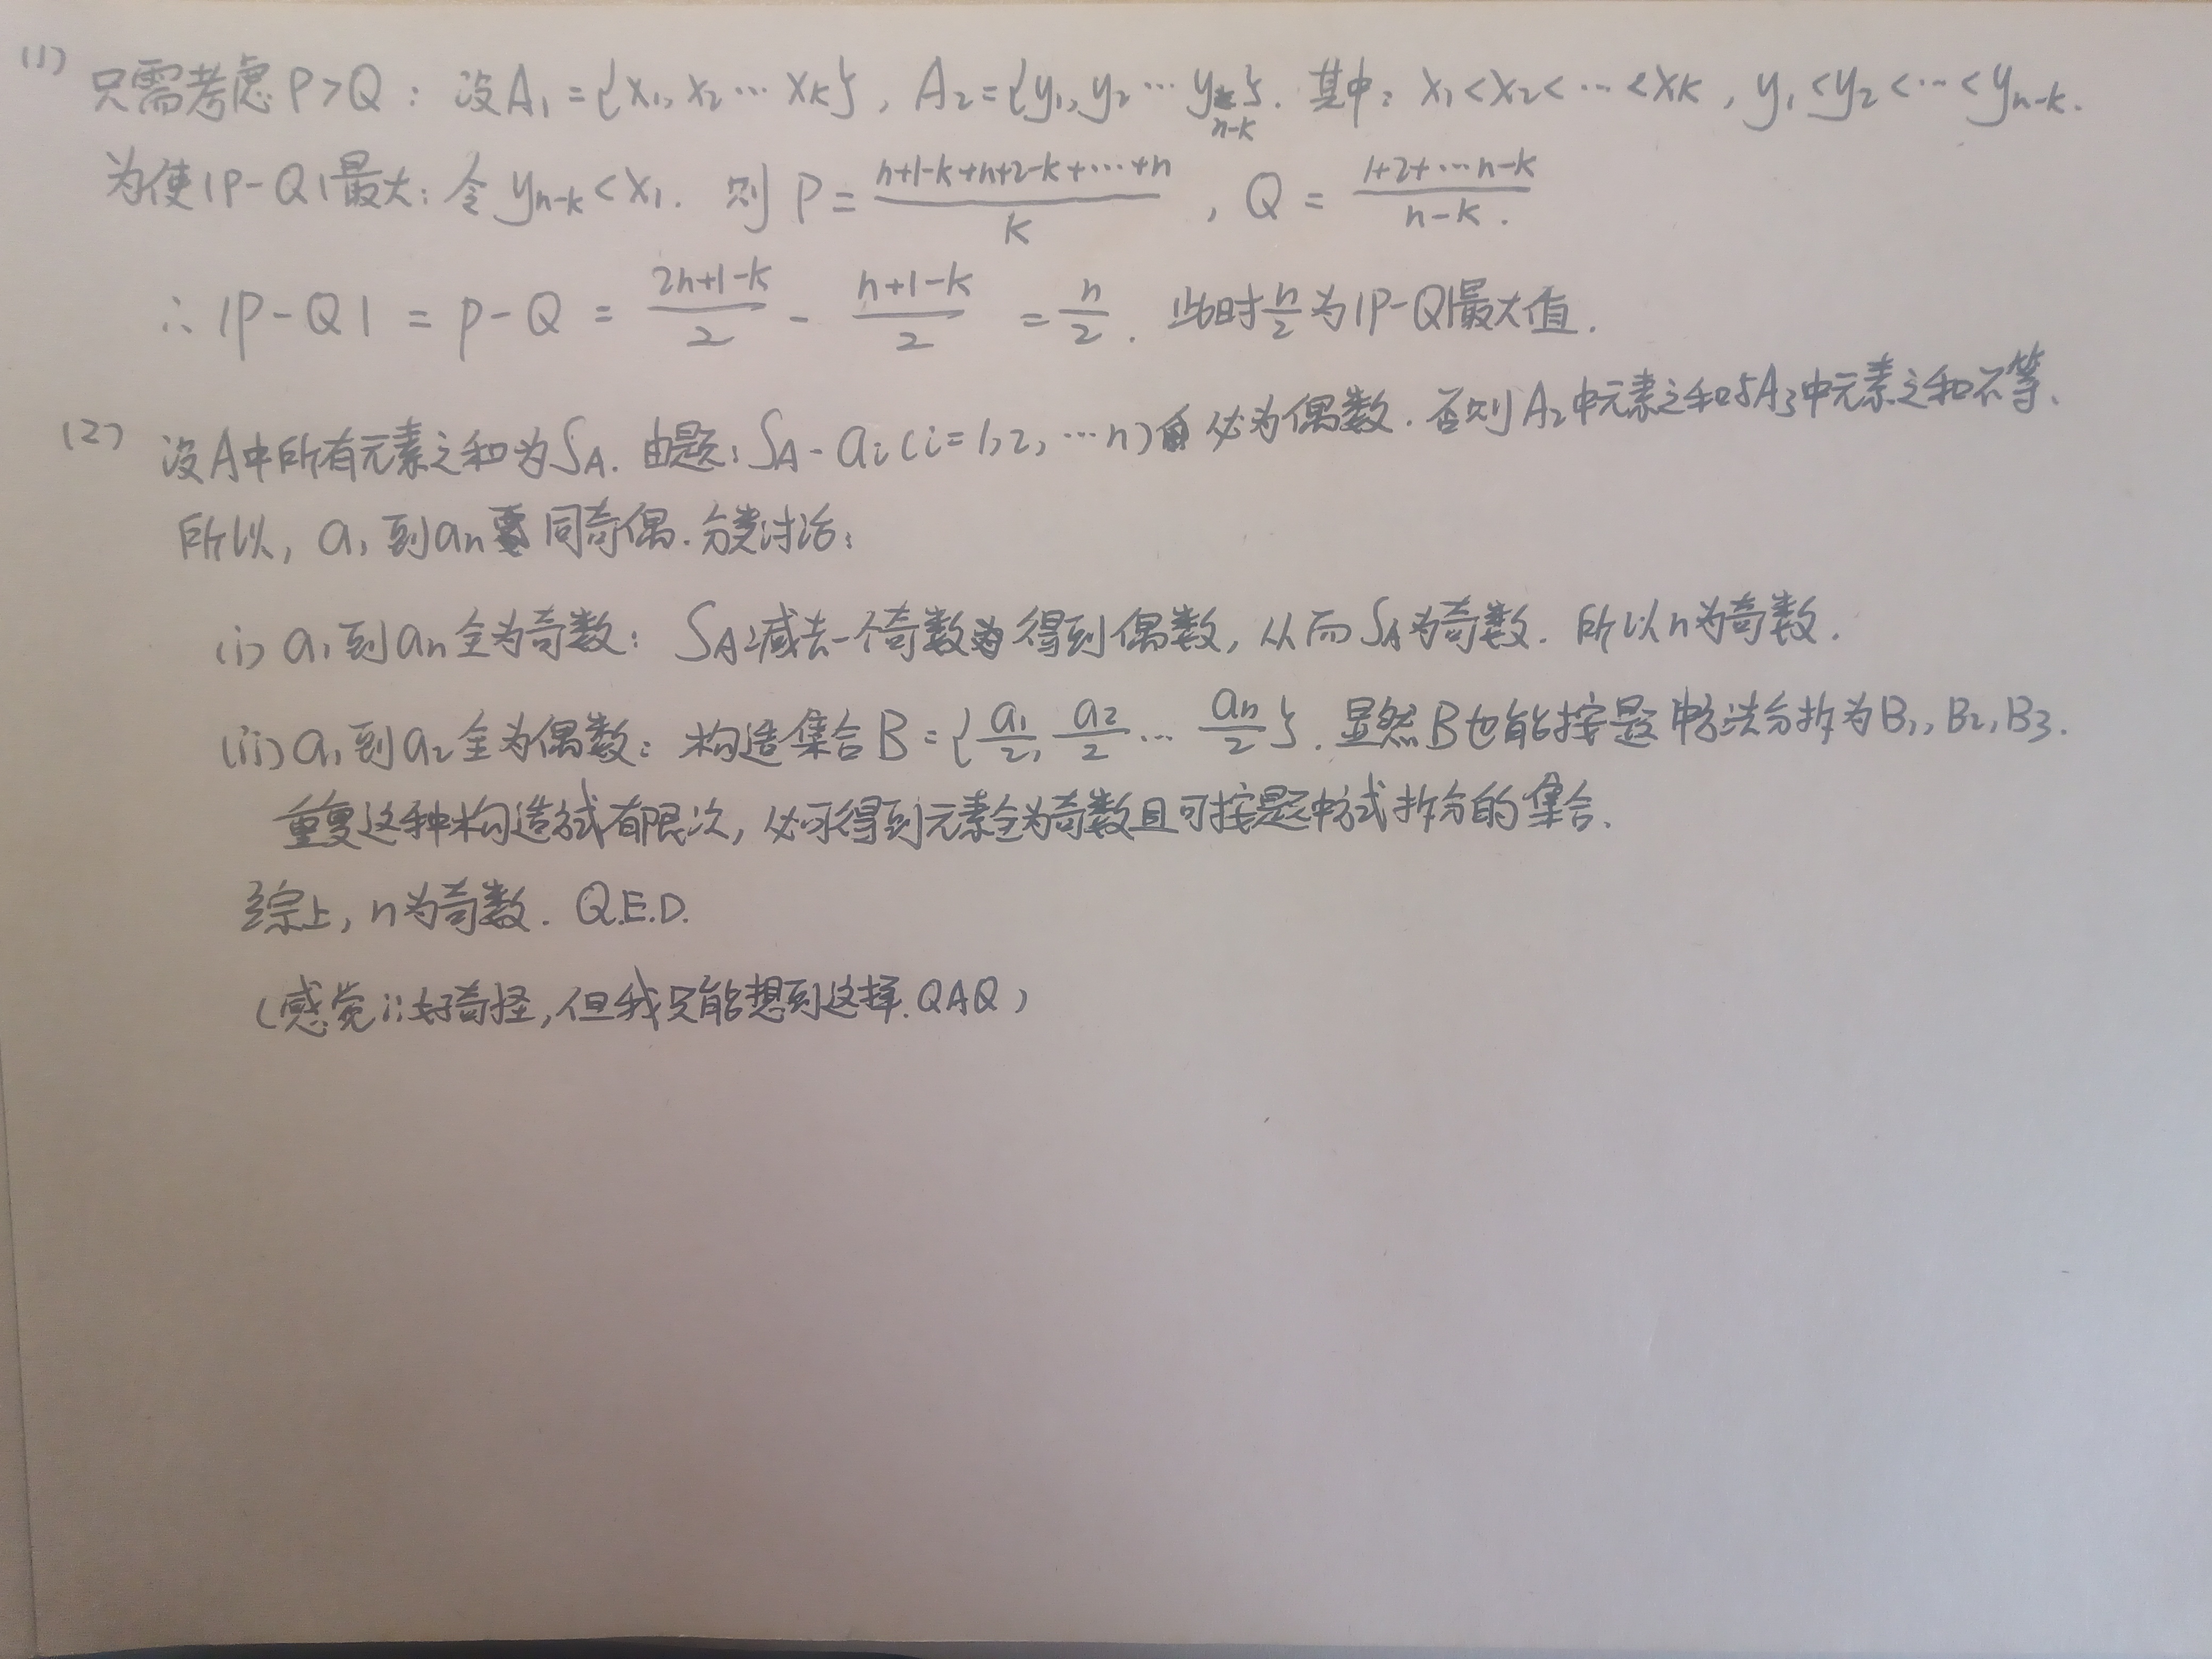 (1) 只需考虑P>Q：设A₁={x₁, x₂ … xₖ}, A₂={y₁, y₂ … yₙ₋ₖ}. 其中：x₁<x₂<…<xₖ, y₁<y₂<…<yₙ₋ₖ.
为使|P-Q|最大：令yₙ₋ₖ<x₁. 则P=(n+1-k+n+2-k+…+n)/k, Q=(1+2+…n-k)/(n-k).
∴|P-Q|=P-Q=(2n+1-k)/2-(n+1-k)/2=n/2. 此时n/2为|P-Q|最大值.
(2) 设A中所有元素之和为S_A. 由题：S_A-aᵢ(i=1,2,…n)必为偶数. 否则A₂中元素之和与A₃中元素之和不等.
所以, a₁到aₙ同奇偶. 分类讨论：
(i) a₁到aₙ全为奇数：S_A减去一个奇数得到偶数, 从而S_A为奇数. 所以n为奇数.
(ii) a₁到a₂全为偶数：构造集合B={a₁/2, a₂/2 … aₙ/2}. 显然B也能按题中方法分拆为B₁, B₂, B₃.
重复这种构造方式有限次, 必可得到元素全为奇数且可按题中方式拆分的集合.
综上, n为奇数. Q.E.D.
(感觉ii好奇怪, 但我只能想到这样. QAQ)